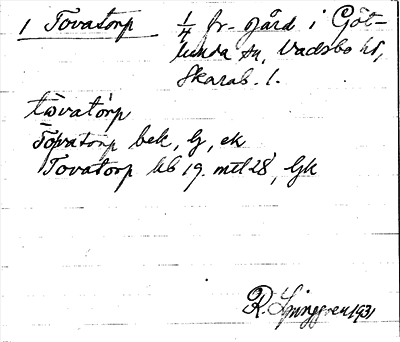 1 Tovatorp 1/4 fr. gård i Göt-
lunda sn, Vadsbo hd,
Skarab. l.
tovatorp
Tovatorp bek, G, ek
Tovatorp kb 19. mtl 28, GK
R. Ljunggren 1931